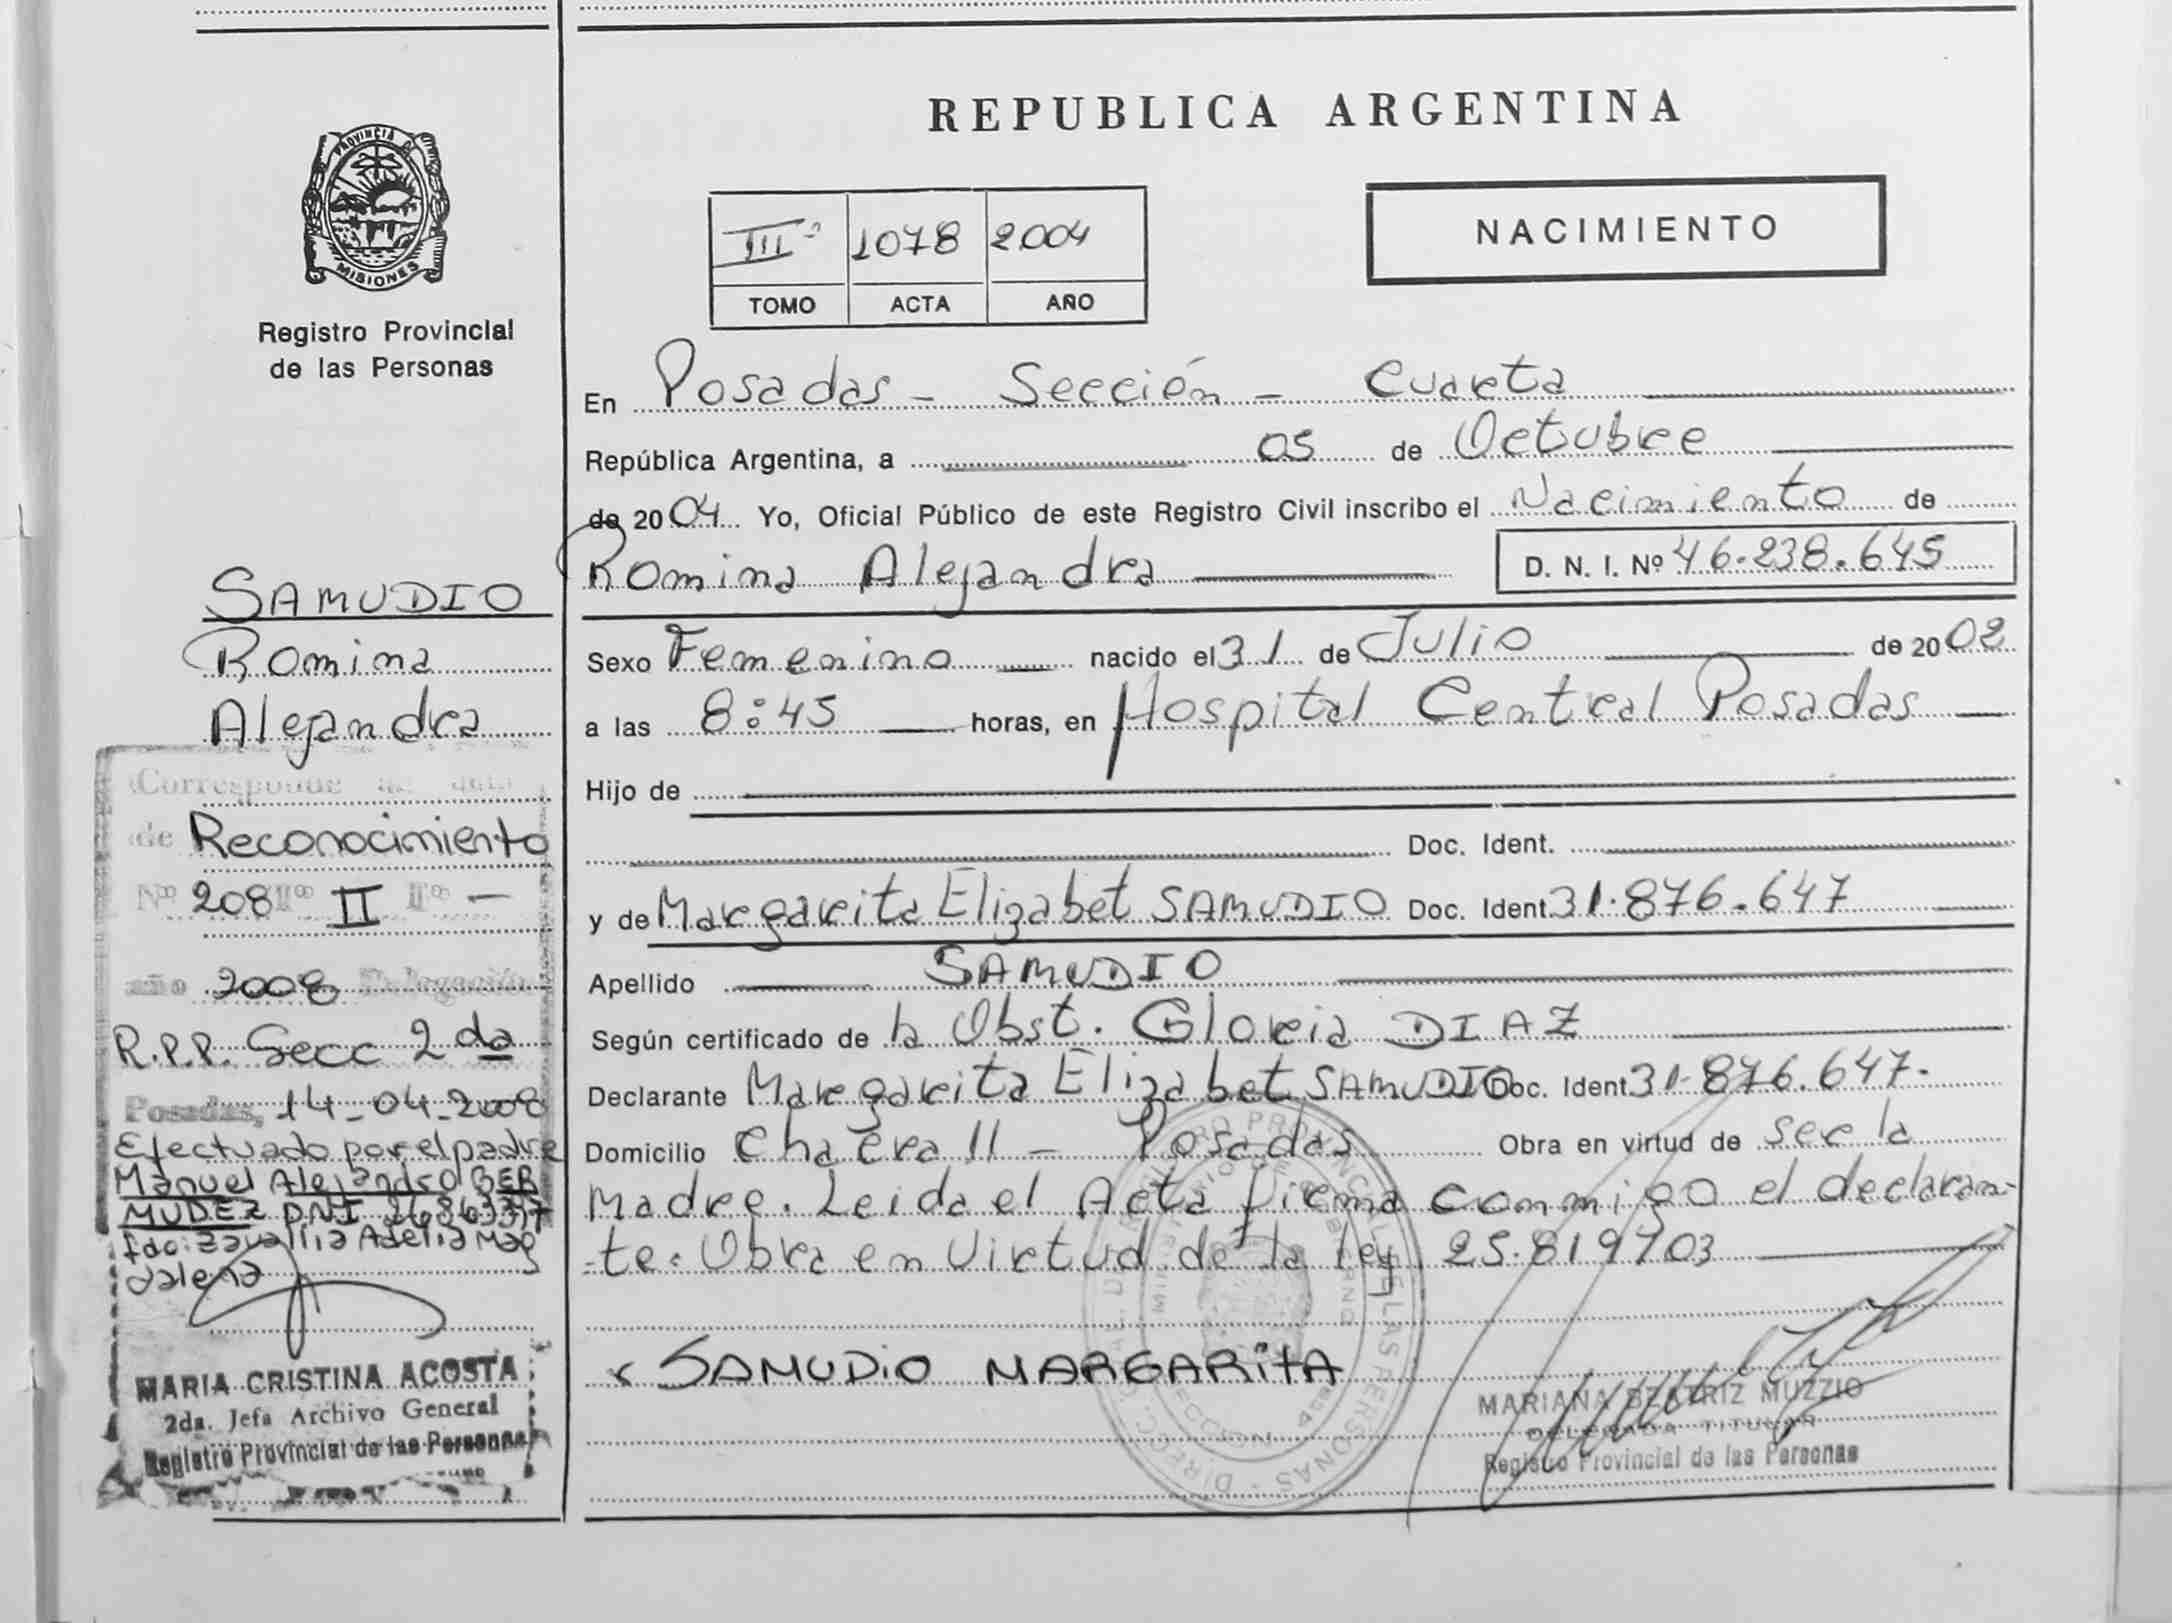 REPUBLICA ARGENTINA
PROVINCIA DE
MISIONES
Registro Provincial
de las Personas
NACIMIENTO
III 1078 2004
TOMO ACTA AÑO
En Posadas - Sección - Cuarta
República Argentina, a 05 de Octubre
de 2004 Yo, Oficial Público de este Registro Civil inscribo el Nacimiento de
Romina Alejandra D. N. I. Nº 46.238.645
Sexo Femenino nacido el 31 de Julio de 2002
a las 8:45 horas, en Hospital Central Posadas
Hijo de
Doc. Ident.
y de Margarita Elizabet SAMUDIO Doc. Ident 31.876.647
Apellido SAMUDIO
Según certificado de la Obst. Gloria DIAZ
Declarante Margarita Elizabet SAMUDIO Doc. Ident 31.876.647.
Domicilio Chacra 11 - Posadas Obra en virtud de ser la
Madre. Leida el Acta firma conmigo el declaran-
te. Obra en Virtud de la ley 25.819/03
SAMUDIO MARGARITA
MARIANA BEATRIZ MUZZIO
DELEGADA TITULAR
Registro Provincial de las Personas
SAMUDIO
Romina
Alejandra
Corresponde
de Reconocimiento
Nº 208 Tº II Fº -
año 2008 Delegación
R.P.P. Secc 2da
Posadas, 14-04-2008
Efectuado por el padre
Manuel Alejandro BER
MUDEZ DNI
Fdo: Zavallia Adelia Mag
dalena
MARIA CRISTINA ACOSTA
2da. Jefa Archivo General
Registro Provincial de las Personas